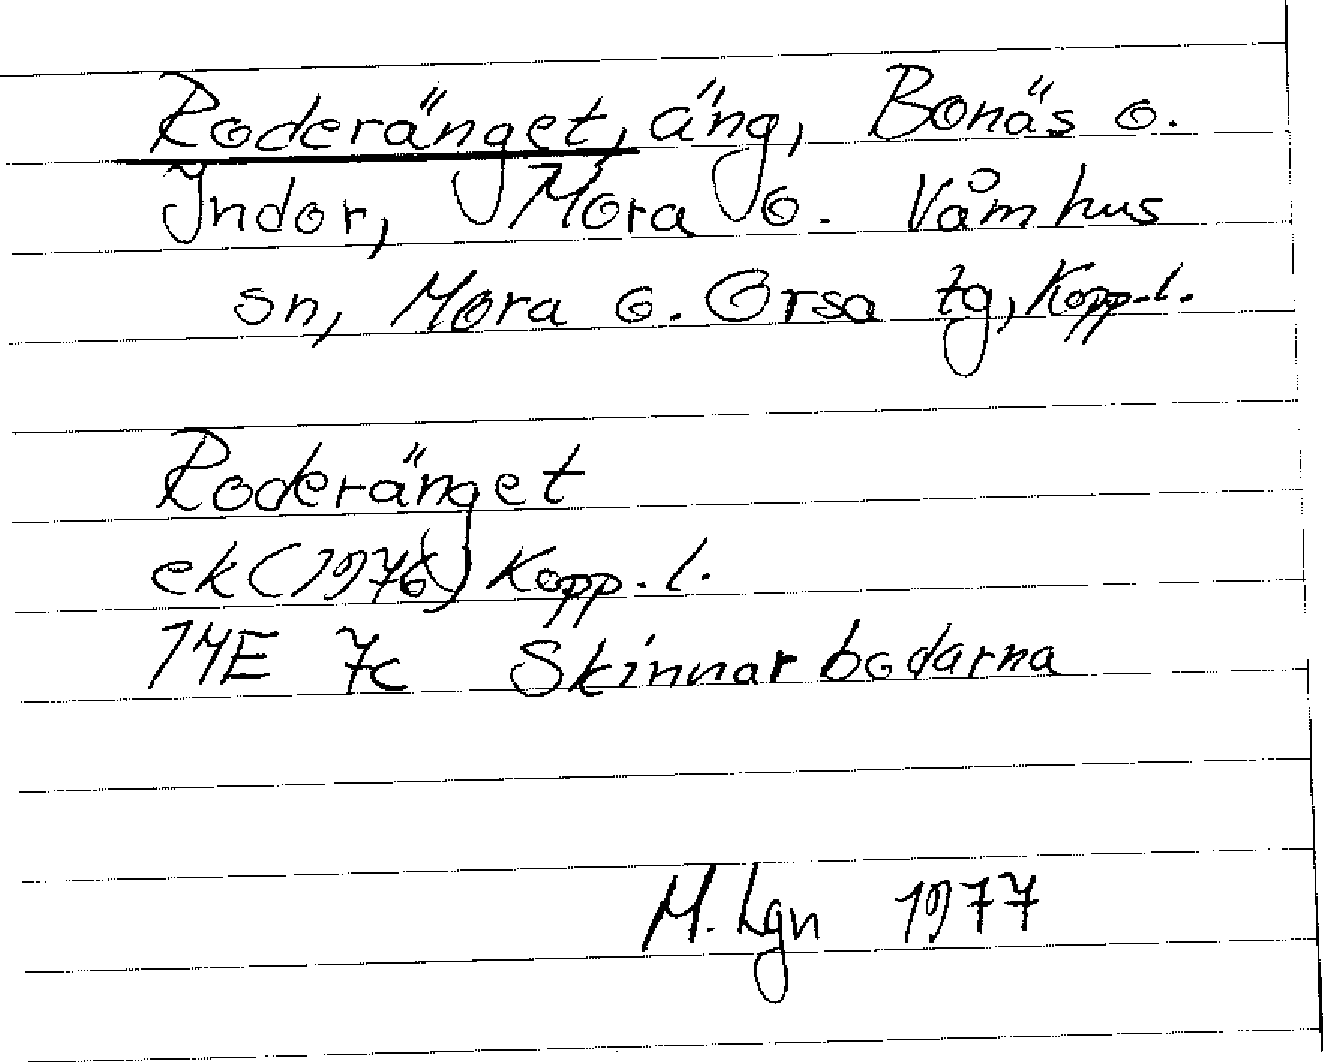 Roderänget, äng, Bonäs o.
Indor, Mora o. Våmhus
sn, Mora o. Orsa tg, Kopp.l.
Roderänget
ek (1976) Kopp.l.
14E 7c Skinnarbodarna
M. Lgn 1977